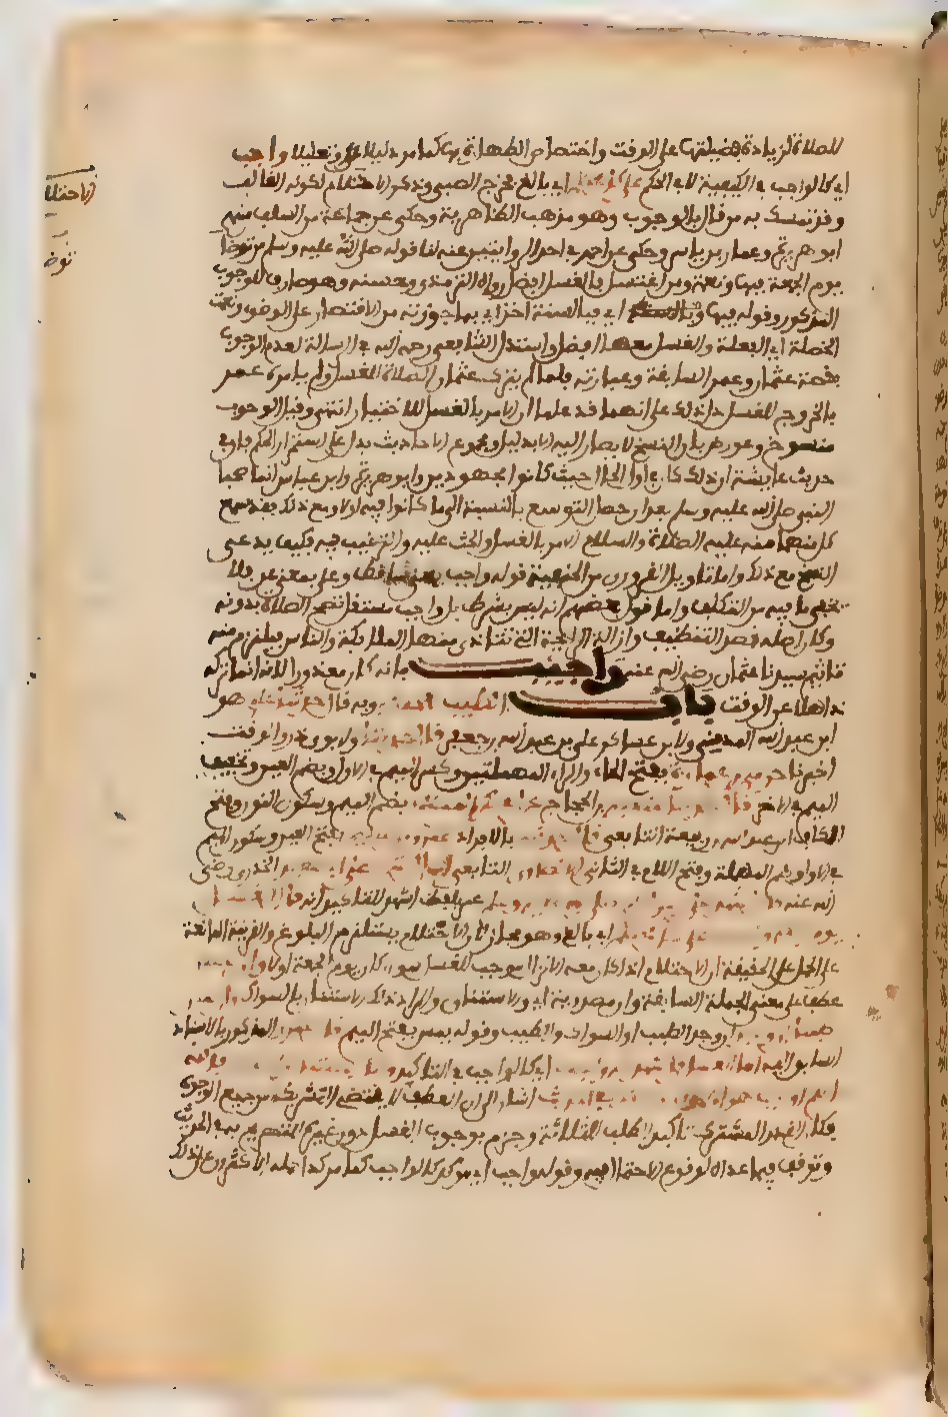 للصلاة لزيادة فضيلتها على الوقت واختصاص الطهارة بها كما مر دليلا وتعليلا واجب
اي كالواجب في الكيفية لا في الحكم على كل محتلم اي بالغ خرج الصبي وذكر الاحتلام لكونه الغالب
وقد تمسك به من قال بالوجوب وهو مذهب الظاهرية وحكي عن جماعة من السلف منهم
ابو هريرة وعمار بن ياسر وحكي عن احمد في احدى الروايتين عنه لنا قوله صلى الله عليه وسلم من توضا
يوم الجمعة فبها ونعمت ومن اغتسل فالغسل افضل رواه الترمذي وحسنه وهو صارف للوجوب
المذكور وقوله فبها اي فبالسنة اخذ اي بما جوزته من الاقتصار على الوضوء ونعمت
الخصلة اي الفعلة والغسل معها افضل واستدل الشافعي رحمه الله في الرسالة لعدم الوجوب
بقصة عثمان وعمر السابقة وعبارته فلما لم يترك عثمان الصلاة للغسل ولم يامره عمر
بالخروج للغسل دل ذلك على انهما قد علما ان الامر بالغسل للاختيار انتهى وقيل الوجوب
منسوخ وعورض بان النسخ لا يصار اليه الا بدليل ومجموع الاحاديث يدل على استمرار الحكم فان في
حديث عايشة ان ذلك كان في اول الحال حيث كانوا مجهودين وابو هريرة وابن عباس انما صحبا
النبي صلى الله عليه وسلم بعد ان حصل التوسع بالنسبة الى ما كانوا فيه اولا ومع ذلك فقد سمع
كل منهما منه عليه الصلاة والسلام الامر بالغسل والحث عليه والترغيب فيه فكيف يدعى
النسخ مع ذلك واما تاويل القدوري من الحنفية قوله واجب بمعنى ساقط وعلى بمعنى عن فلا
يخفى ما فيه من التكلف واما قول بعضهم انه ليس بشرط بل واجب مستقل تصح الصلاة بدونه
وكان اصله قصد التنظيف وازالة الرايحة التي تتاذى منها الملائكة والناس فيلزم منه
تاثيم سيدنا عثمان رضي الله عنه واجيب بانه كان معذورا لانه انما تركه
ذاهلا عن الوقت باب الطيب للجمعة وبه قال حدثنا علي هو
ابن عبد الله المديني ولابن عساكر علي بن عبد الله بن جعفر قال ولابوي ذر والوقت
اخبرنا حرمي بن عمارة بفتح الحاء والراء المهملتين وكسر الميم في الاول وبضم العين وتخفيف
الميم في الاخر قال حدثنا شعبة بن الحجاج عن ابي بكر بن المنكدر بضم الميم وسكون النون وفتح
الكاف ابن عبد الله بن ربيعة التابعي قال حدثني بالافراد عمرو بن سليم بفتح العين وسكون الميم
في الاول وضم المهملة وفتح اللام في الثاني الانصاري التابعي قال اشهد على ابي سعيد الخدري رضي
الله عنه قال اشهد على رسول الله صلى الله عليه وسلم عبر بلفظ اشهد للتاكيد انه قال الغسل
يوم الجمعة واجب على كل محتلم اي بالغ وهو مجاز لان الاحتلام يستلزم البلوغ والقرينة المانعة
على الحمل على الحقيقة ان الاحتلام اذا كان معه الانزال موجب للغسل سواء كان يوم الجمعة اولا وان يستن
عطف على معنى الجملة السابقة وان مصدرية اي والاستنان والمراد بذلك الاستنان بالسواك وان يمس
طيبا ان وجد ان وجد الطيب او السواك والطيب وقوله يمس بفتح الميم قال عمرو المذكور بالاسناد
السابق اليه اما الغسل فاشهد انه واجب اي كالواجب في التاكيد واما الاستنان والطيب فالله
اعلم اواجب هو ام لا ولكن هكذا في الحديث اشار الى ان العطف لا يقتضي التشريك من جميع الوجوه
فكان القدر المشترك تاكيد الطلب للثلاثة وجزم بوجوب الغسل دون غيره للتصريح به في الحديث
وتوقف فيما عداه لوقوع الاحتمال فيه وقوله واجب اي موكد كالواجب كما مر كذا حمله الاكثرون على ذلك
الاحتلا
توضا